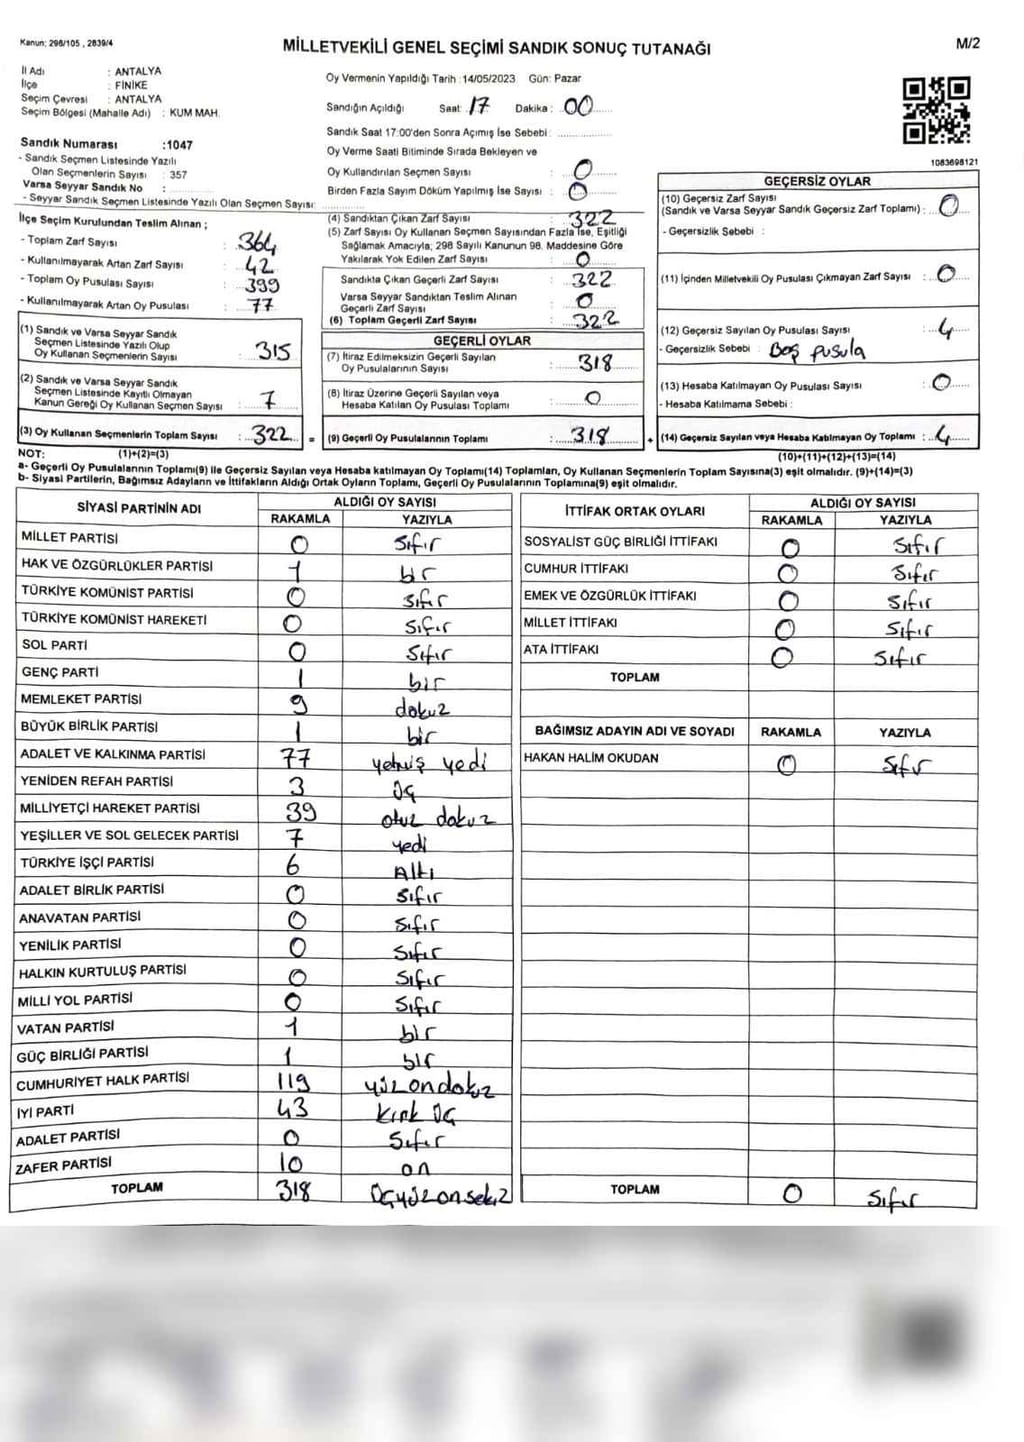 Kanun; 298/105 , 2839/4
MİLLETVEKİLİ GENEL SEÇİMİ SANDIK SONUÇ TUTANAĞI
M/2
İl Adı : ANTALYA
İlçe : FİNİKE
Seçim Çevresi : ANTALYA
Seçim Bölgesi (Mahalle Adı) : KUM MAH.
Sandık Numarası :1047
- Sandık Seçmen Listesinde Yazılı
Olan Seçmenlerin Sayısı : 357
Varsa Seyyar Sandık No :
- Seyyar Sandık Seçmen Listesinde Yazılı Olan Seçmen Sayısı:
Oy Vermenin Yapıldığı Tarih :14/05/2023 Gün: Pazar
Sandığın Açıldığı Saat: 17 Dakika : 00
Sandık Saat 17:00'den Sonra Açımış İse Sebebi :
Oy Verme Saati Bitiminde Sırada Bekleyen ve
Oy Kullandırılan Seçmen Sayısı : 0
Birden Fazla Sayım Döküm Yapılmış İse Sayısı : 0
1083698121
İlçe Seçim Kurulundan Teslim Alınan ;
- Toplam Zarf Sayısı : 364
- Kullanılmayarak Artan Zarf Sayısı : 42
- Toplam Oy Pusulası Sayısı : 399
- Kullanılmayarak Artan Oy Pusulası : 77
(1) Sandık ve Varsa Seyyar Sandık
Seçmen Listesinde Yazılı Olup
Oy Kullanan Seçmenlerin Sayısı : 315
(2) Sandık ve Varsa Seyyar Sandık
Seçmen Listesinde Kayıtlı Olmayan
Kanun Gereği Oy Kullanan Seçmen Sayısı : 7
(3) Oy Kullanan Seçmenlerin Toplam Sayısı : 322 =
(4) Sandıktan Çıkan Zarf Sayısı : 322
(5) Zarf Sayısı Oy Kullanan Seçmen Sayısından Fazla İse, Eşitliği
Sağlamak Amacıyla; 298 Sayılı Kanunun 98. Maddesine Göre
Yakılarak Yok Edilen Zarf Sayısı : 0
Sandıkta Çıkan Geçerli Zarf Sayısı : 322
Varsa Seyyar Sandıktan Teslim Alınan
Geçerli Zarf Sayısı : 0
(6) Toplam Geçerli Zarf Sayısı : 322
GEÇERLİ OYLAR
(7) İtiraz Edilmeksizin Geçerli Sayılan
Oy Pusulalarının Sayısı : 318
(8) İtiraz Üzerine Geçerli Sayılan veya
Hesaba Katılan Oy Pusulası Toplamı : 0
(9) Geçerli Oy Pusulalarının Toplamı : 318 +
GEÇERSİZ OYLAR
(10) Geçersiz Zarf Sayısı
(Sandık ve Varsa Seyyar Sandık Geçersiz Zarf Toplamı) : 0
- Geçersizlik Sebebi :
(11) İçinden Milletvekili Oy Pusulası Çıkmayan Zarf Sayısı : 0
(12) Geçersiz Sayılan Oy Pusulası Sayısı : 4
- Geçersizlik Sebebi : Boş pusula
(13) Hesaba Katılmayan Oy Pusulası Sayısı : 0
- Hesaba Katılmama Sebebi :
(14) Geçersiz Sayılan veya Hesaba Katılmayan Oy Toplamı : 4
NOT: (1)+(2)=(3) (10)+(11)+(12)+(13)=(14)
a- Geçerli Oy Pusulalarının Toplamı(9) ile Geçersiz Sayılan veya Hesaba katılmayan Oy Toplamı(14) Toplamları, Oy Kullanan Seçmenlerin Toplam Sayısına(3) eşit olmalıdır. (9)+(14)=(3)
b- Siyasi Partilerin, Bağımsız Adayların ve İttifakların Aldığı Ortak Oyların Toplamı, Geçerli Oy Pusulalarının Toplamına(9) eşit olmalıdır.
SİYASİ PARTİNİN ADI ALDIĞI OY SAYISI
RAKAMLA YAZIYLA
MİLLET PARTİSİ 0 Sıfır
HAK VE ÖZGÜRLÜKLER PARTİSİ 1 bir
TÜRKİYE KOMÜNİST PARTİSİ 0 Sıfır
TÜRKİYE KOMÜNİST HAREKETİ 0 Sıfır
SOL PARTİ 0 Sıfır
GENÇ PARTİ 1 bir
MEMLEKET PARTİSİ 9 dokuz
BÜYÜK BİRLİK PARTİSİ 1 bir
ADALET VE KALKINMA PARTİSİ 77 yetmiş yedi
YENİDEN REFAH PARTİSİ 3 üç
MİLLİYETÇİ HAREKET PARTİSİ 39 otuz dokuz
YEŞİLLER VE SOL GELECEK PARTİSİ 7 yedi
TÜRKİYE İŞÇİ PARTİSİ 6 Altı
ADALET BİRLİK PARTİSİ 0 Sıfır
ANAVATAN PARTİSİ 0 Sıfır
YENİLİK PARTİSİ 0 Sıfır
HALKIN KURTULUŞ PARTİSİ 0 Sıfır
MİLLİ YOL PARTİSİ 0 Sıfır
VATAN PARTİSİ 1 bir
GÜÇ BİRLİĞİ PARTİSİ 1 bir
CUMHURİYET HALK PARTİSİ 119 yüz on dokuz
İYİ PARTİ 43 kırk üç
ADALET PARTİSİ 0 Sıfır
ZAFER PARTİSİ 10 on
TOPLAM 318 üçyüzonsekiz
İTTİFAK ORTAK OYLARI ALDIĞI OY SAYISI
RAKAMLA YAZIYLA
SOSYALİST GÜÇ BİRLİĞİ İTTİFAKI 0 Sıfır
CUMHUR İTTİFAKI 0 Sıfır
EMEK VE ÖZGÜRLÜK İTTİFAKI 0 Sıfır
MİLLET İTTİFAKI 0 Sıfır
ATA İTTİFAKI 0 Sıfır
TOPLAM
BAĞIMSIZ ADAYIN ADI VE SOYADI RAKAMLA YAZIYLA
HAKAN HALİM OKUDAN 0 Sıfır
TOPLAM 0 Sıfır